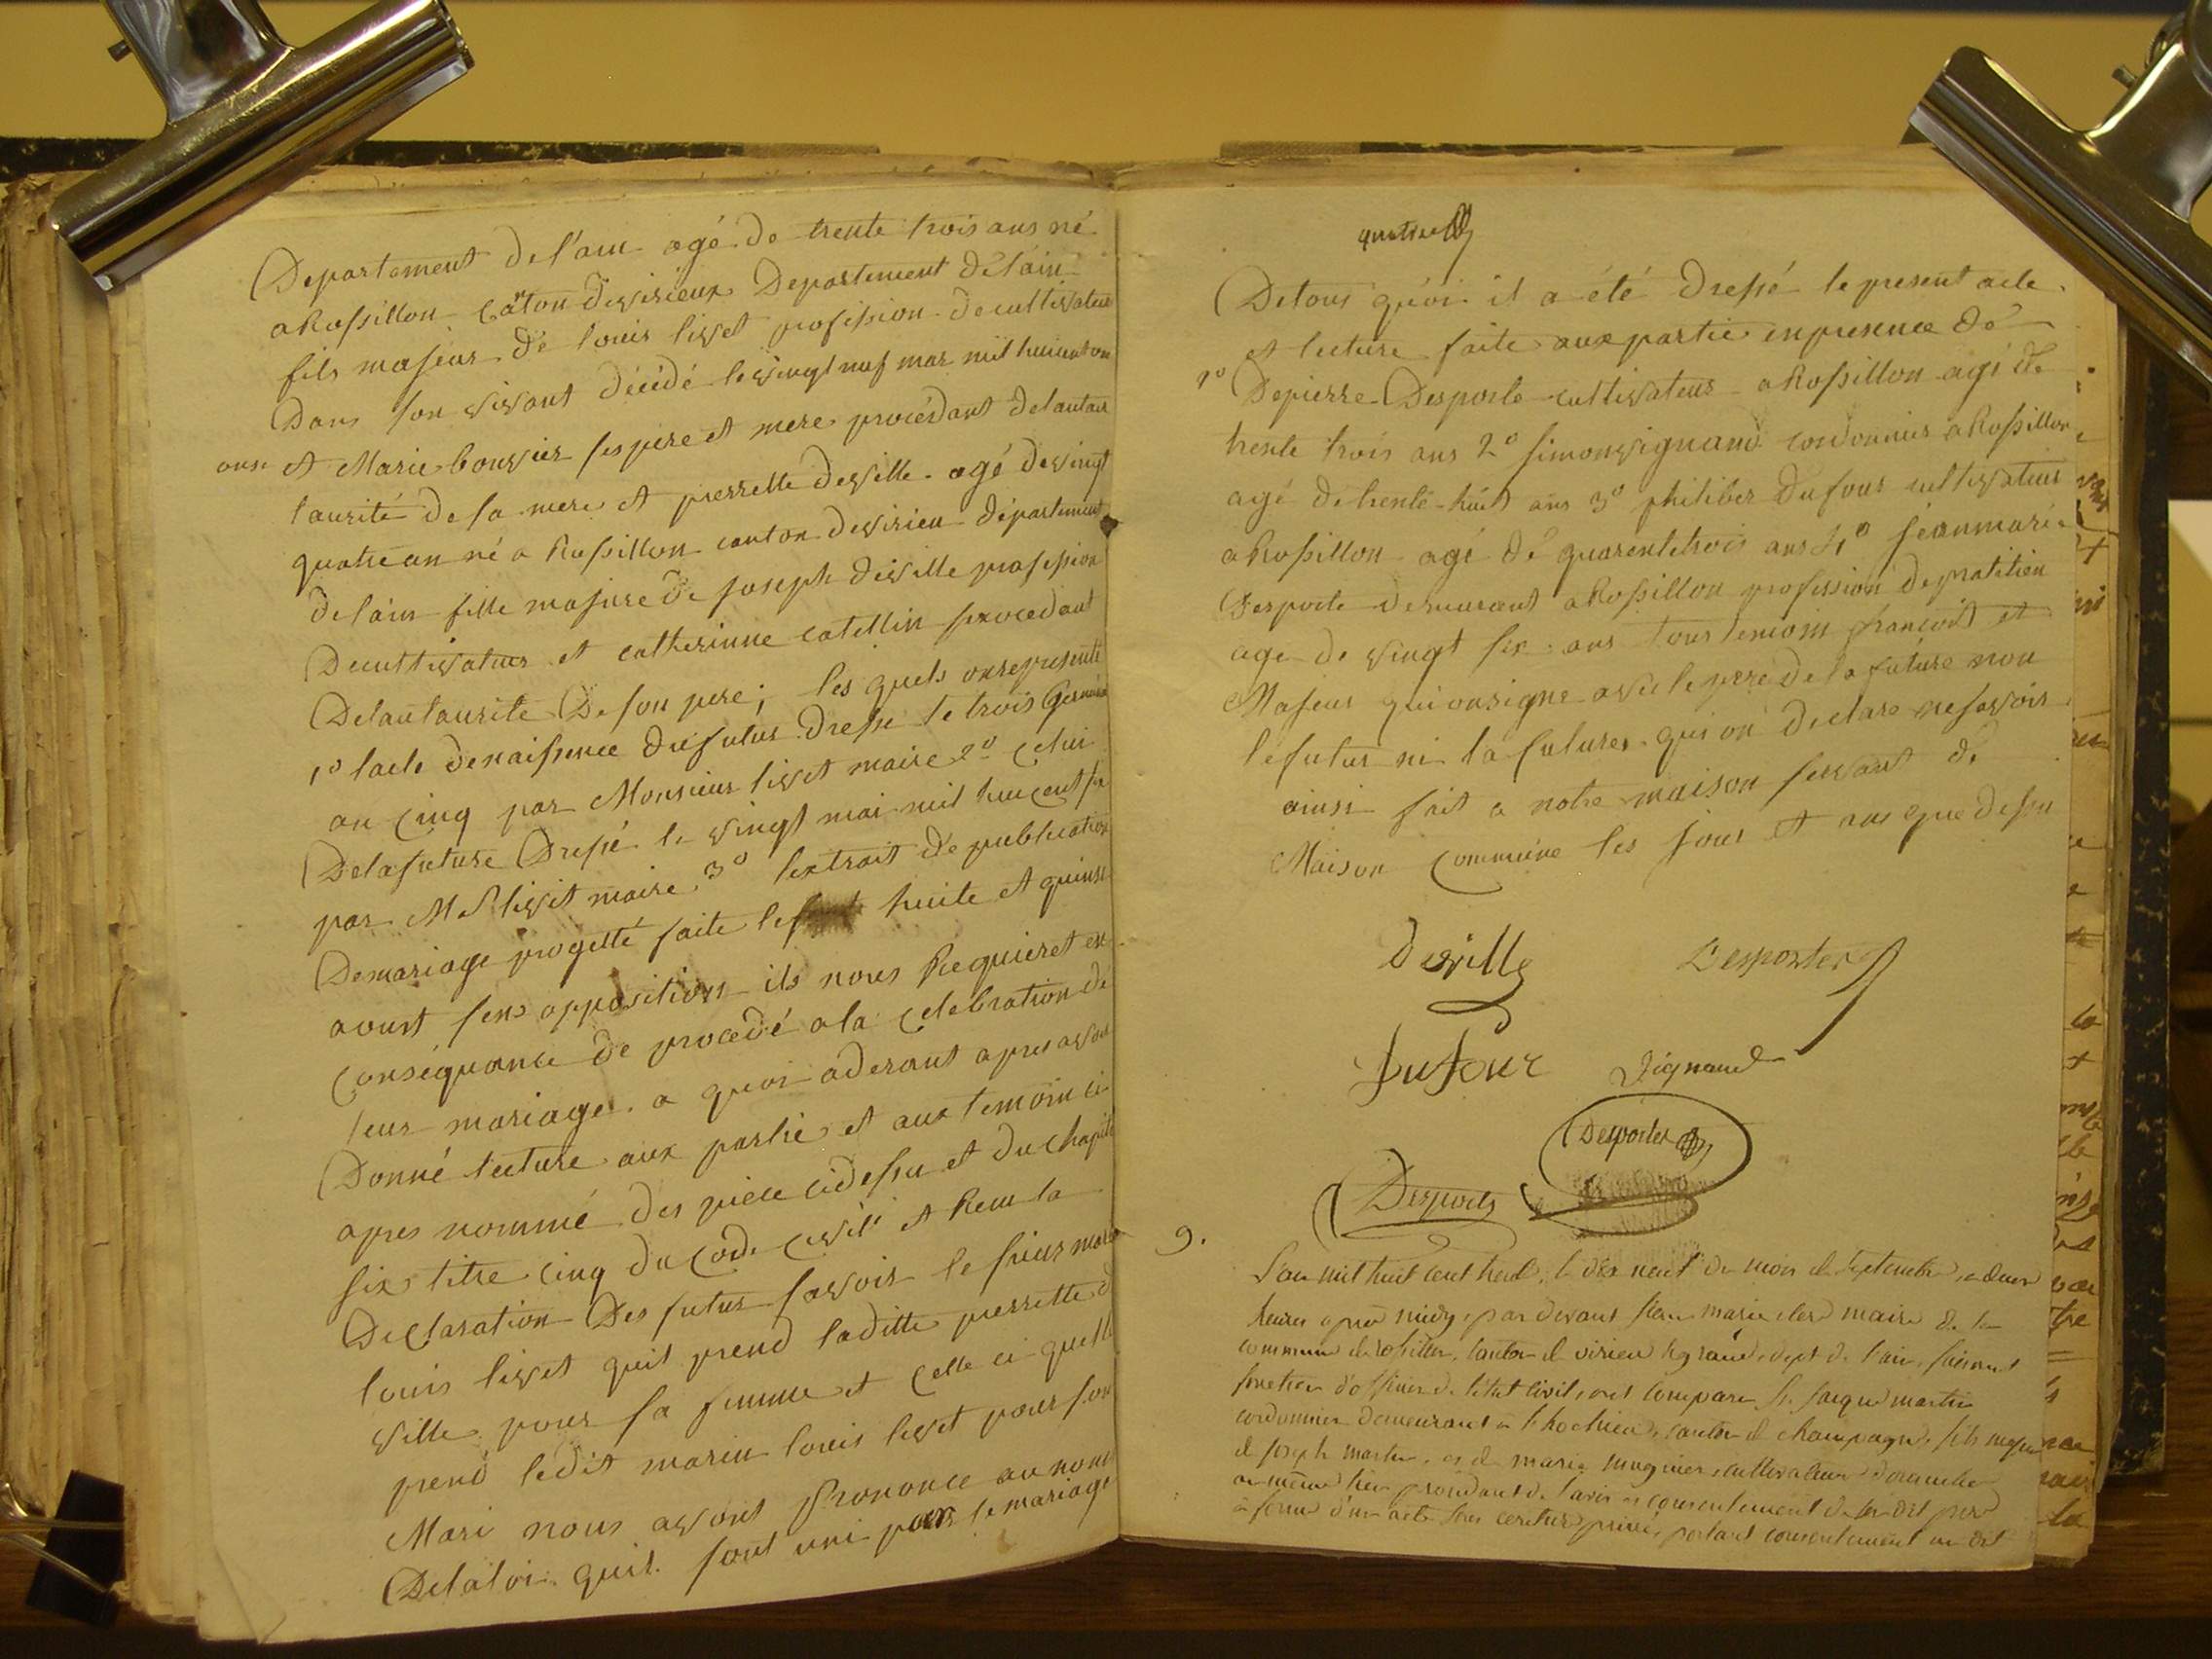 Departement de l'ain agé de trente trois ans né
a Rossillon canton devirieux Departement de lain
fils majeur de louis livet profession de cultivateur
Dans son vivant décédé le vingt neuf mar mil huit cent
onse et Marie bouvier ses pere et mere procédant de lautau
taurité de sa mere et pierrette deville agé de vingt
quatre an né a Rossillon canton devirieu département
de lain fille majure de joseph deville profession
De cultivateur et catherinne catellin procedant
De lautaurite De son pere; les quels on representé
1º lacte denaissence du futur dressé le trois Germinal
an cinq par Monsieur livet maire 2º celui
De la future Dressé le vingt mai mil huit cent
par Mr livet maire 3º lextrait de publication
De mariage progetté faite le huite et quinse
avust sens opposition ils nous Requieret en
conséquance de procedé a la celebration de
leur mariage. a quoi aderant apres avoir
Donné lecture aux partie et aux temoin ci
apres nommé des piece cidessu et du chapitre
six titre cinq du Code civil et Recu la
Declaration Des futur savoir le sieur marin
louis livet quil prend laditte pierrette de
ville pour sa femme et celle ci quelle
prend ledit marin louis livet pour son
Mari nous avont Prononcé au nom
De la loi quil sont uni par le mariage
De tous quoi il a été dressé le present acte
et lecture faite aux partie en presence de
1º De pierre Desporte cultivateur a Rossillon agé de
trente trois ans 2º simon vignand cordonnier a Rossillon
agé de trente-huit ans 3º philiber Dufour cultivateur
a Rossillon agé de quarente trois ans 4º jean marie
Desporte demeurant a Rossillon profession de pratitien
age de vingt six ans tous temoin françois et
Majeur qui on signe avec le pere de la future non
le futur ni la future qui on declaré ne savoir
ainsi fait a notre maison servant de
Maison commune les jour et ans que dessu
Deville Desportes
Dufour Vignand
Desportes
Desporte
9.
L'an mil huit cent , le dix neuf du mois de Septembre, a deux
heures apres midy, par devant jean marie maire de la
commune de rossillon, canton de virieu le grand, dept de l'ain, faisant
fonction d'officier de l'état civil, est comparu Sr jacque martin
cordonnier demeurant a , canton de champagne, fils majeur
de joseph martin, et de marie , cultivateur
au même lieu procédant de l'avis et consentement de son dit pere
a forme d'un acte sous ecriture privée, portant consentement au dit